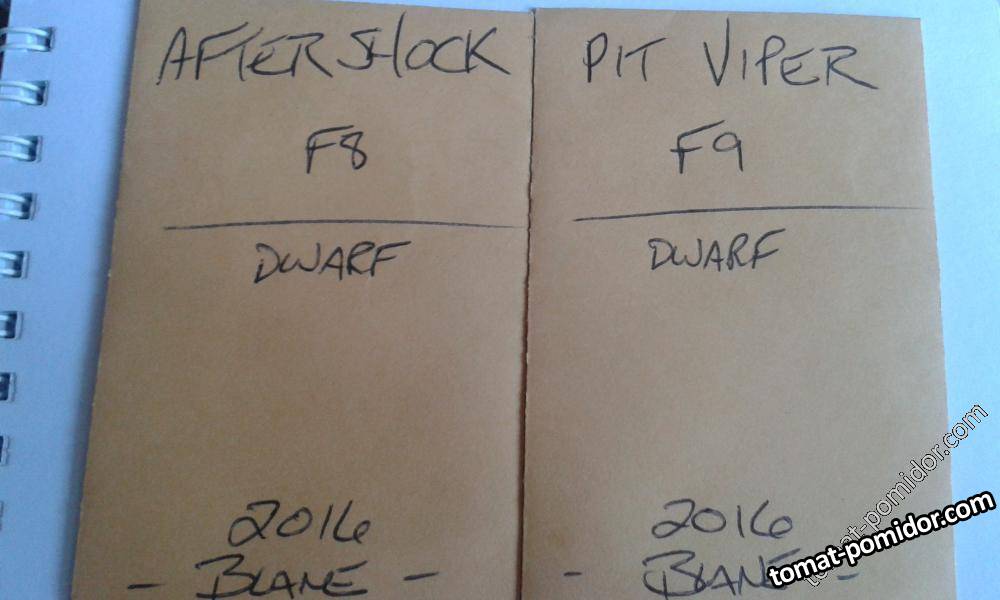 AFTERSHOCK
F8
DWARF
2016
- BLANE -
PIT VIPER
F9
DWARF
2016
- BLANE -
tomat-pomidor.com
tomat-pomidor.com